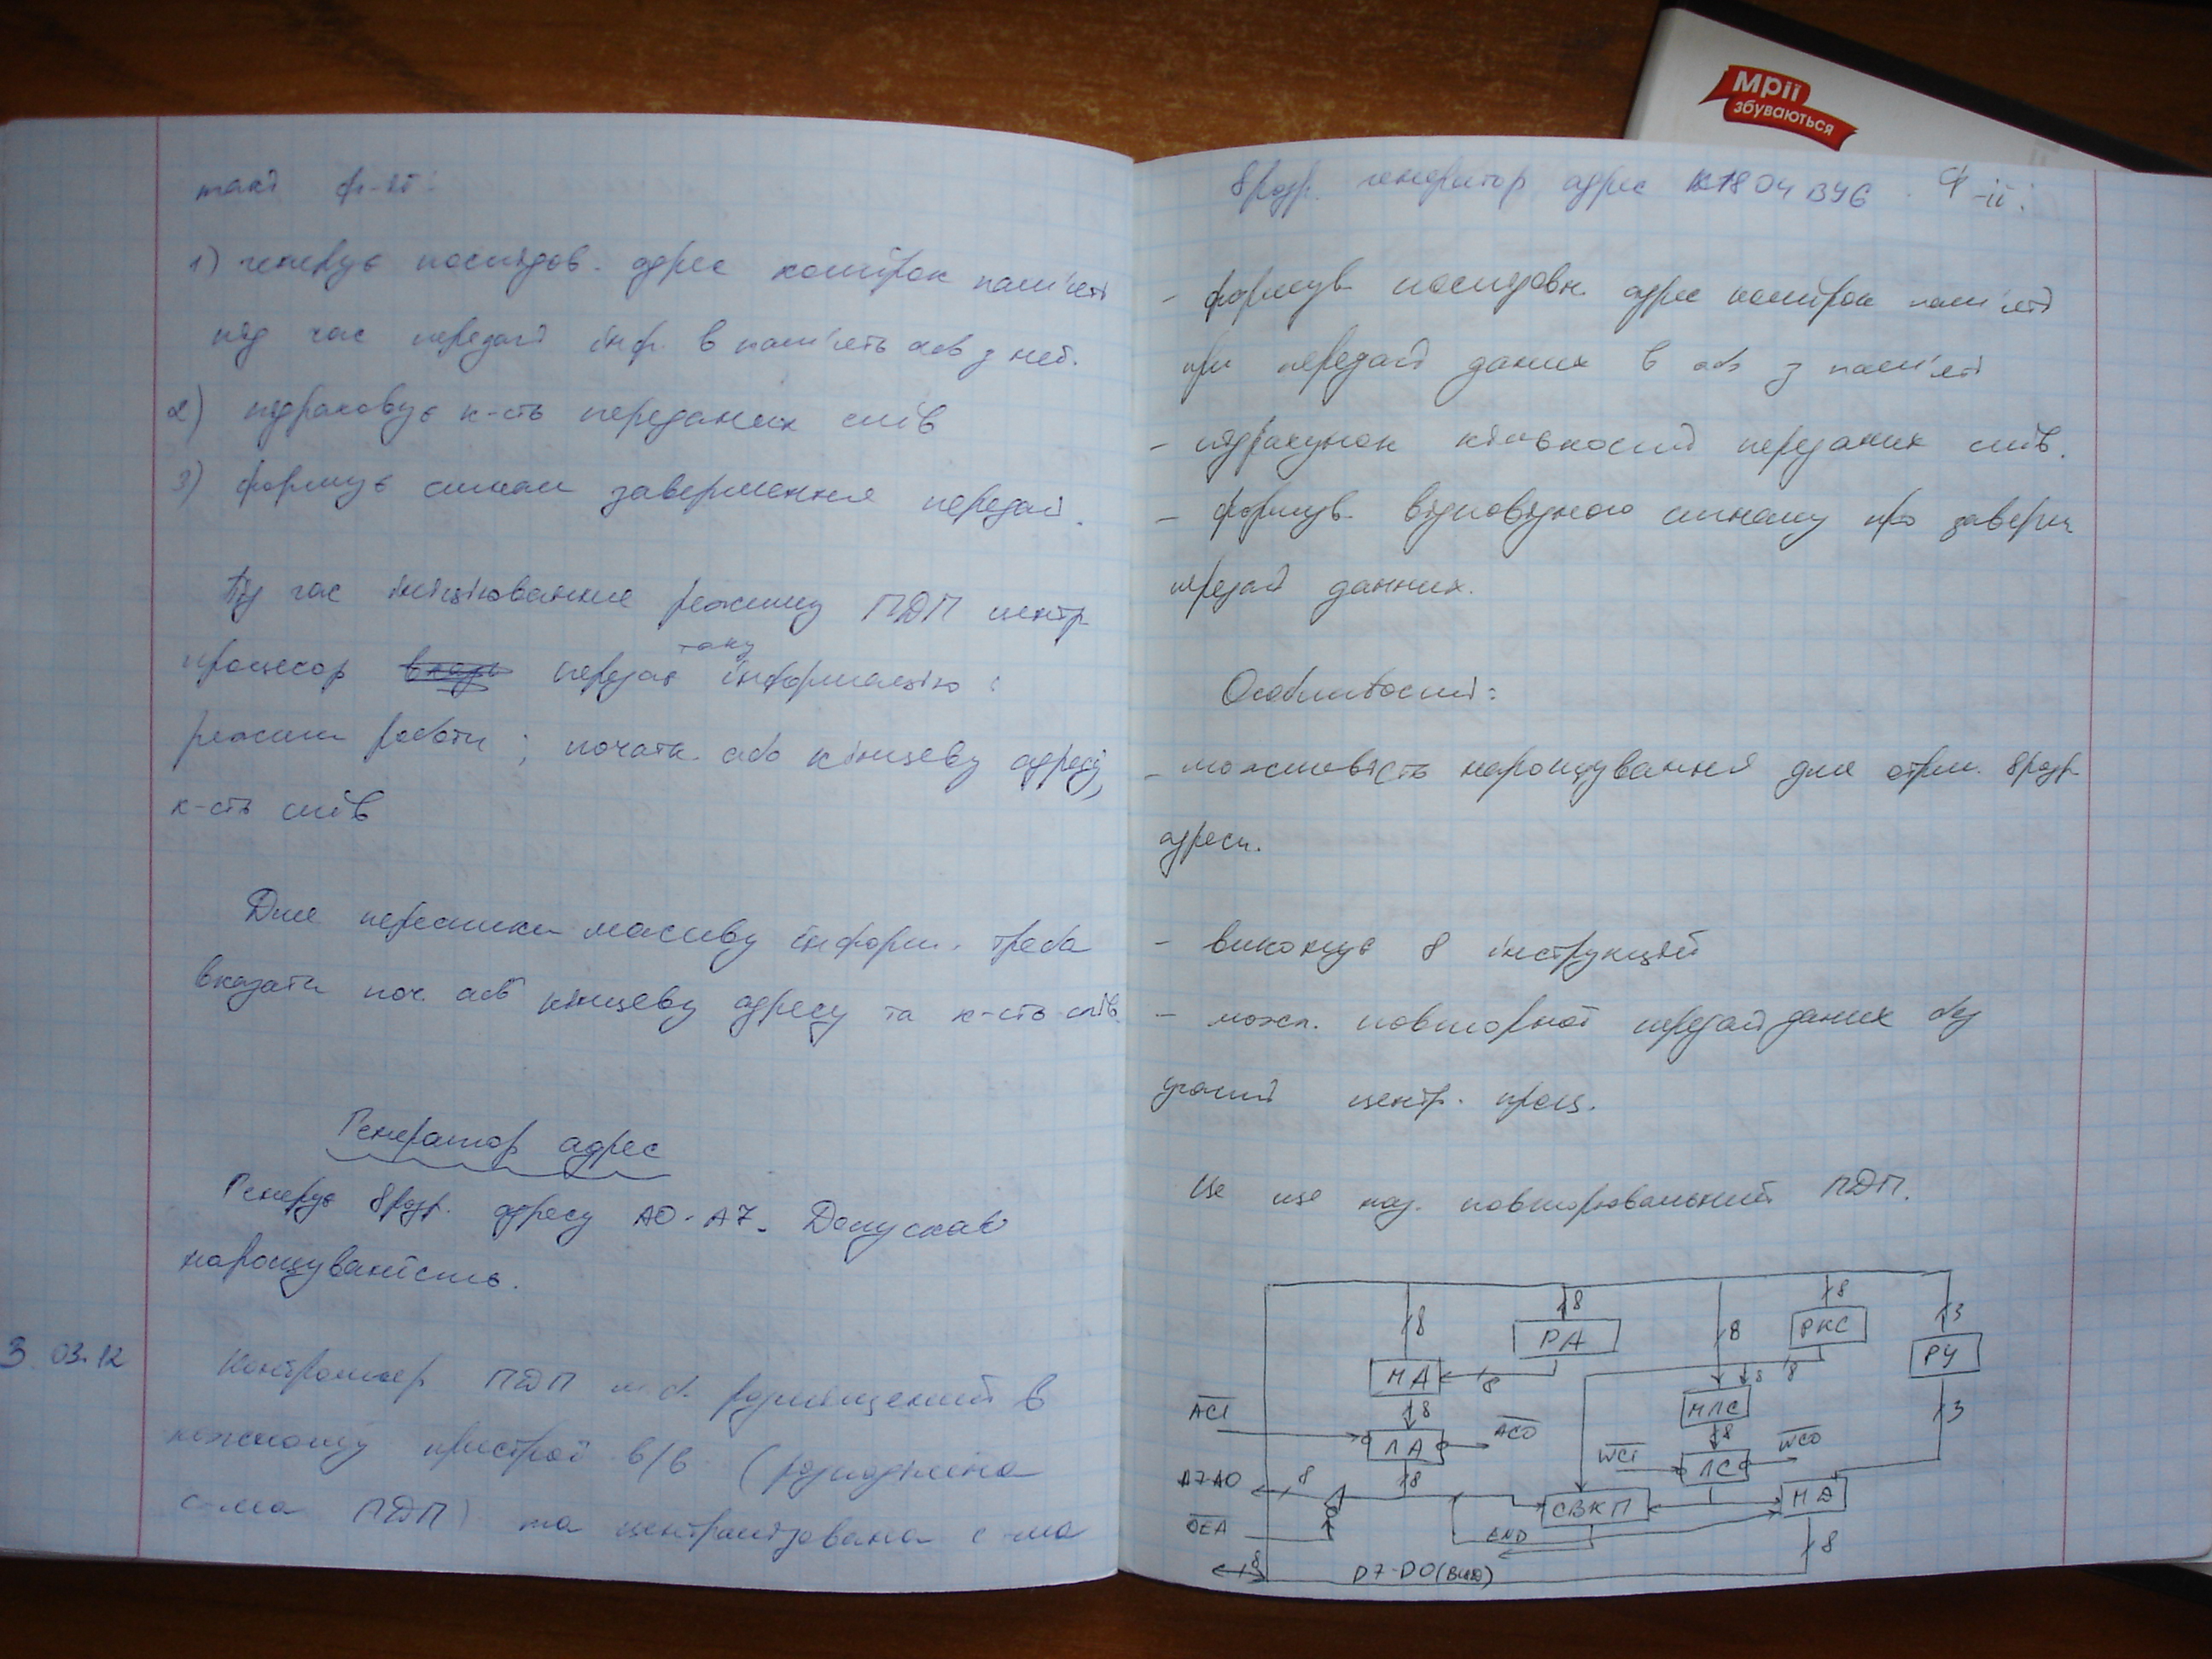 такі ф-ії:
1) генерує послідов. адрес комірок пам'яті
під час передачі інф. в пам'ять або з неї.
2) підраховує к-сть переданих слів
3) формує сигнал завершення передачі.
Під час ініціювання режиму ПДП центр.
процесор передає таку інформацію:
режим роботи; початк. або кінцеву адресу,
к-сть слів
Для пересилки масиву інформ. треба
вказати поч. або кінцеву адресу та к-сть слів.
Генератор адрес
Генерує 8розр. адресу А0-А7. Допускає
нарощуваність.
3.03.12
Контролер ПДП м.б. розміщений в
кожному пристрої в/в (розподілена
с-ма ПДП) та централізована с-ма
Мрії
збуваються
8розр. генератор адрес К1804ВУ6. Ф-ії:
- формув. послідовн. адрес комірок пам'яті
при передачі даних в або з пам'яті
- підрахунок кількості переданих слів.
- формув. відповідного сигналу про заверш
передачі данних.
Особливості:
- можливість нарощування для отрим. 8розр.
адреси.
- виконує 8 інструкцій
- можл. повторної передачі даних без
участі центр. проц.
Це ще наз. повторювальний ПДП.
8
8
8
8
3
РА
РКС
РУ
МА
8
8
8
МЛС
3
ACI
8
ЛА
ACO
8
WCI
ЛС
WCO
A7-A0
8
8
СВКП
МД
OEA
END
8
8
D7-D0(вид)